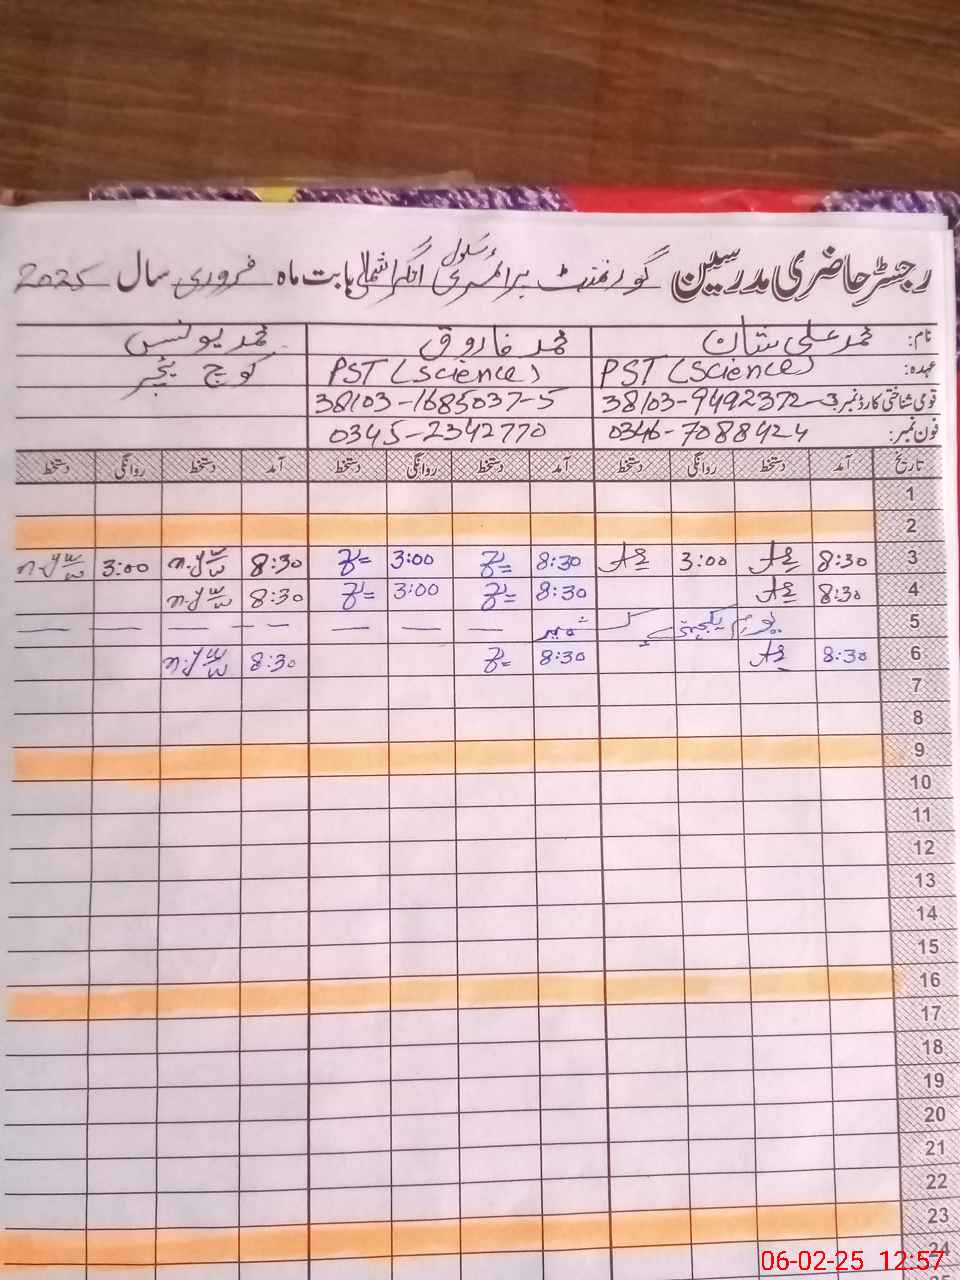 رجسٹر حاضری مدرسین گورنمنٹ پرائمری سکول انگرا شمالی بابت ماہ فروری سال 2025
نام: محمد علی شان محمد فاروق محمد یونس
عہدہ: PST (Science) PST (Science) کوچ ٹیچر
قومی شناختی کارڈ نمبر: 38103-9492372-3 38103-1685037-5
فون نمبر: 0346-7088424 0345-2342770
تاریخ آمد دستخط روانگی دستخط آمد دستخط روانگی دستخط آمد دستخط روانگی دستخط
1
2
3 8:30 3:00 8:30 3:00 8:30 3:00
4 8:30 8:30 3:00 8:30
5 یوم یکجہتی کشمیر
6 8:30 8:30 8:30
7
8
9
10
11
12
13
14
15
16
17
18
19
20
21
22
23
24
06-02-25 12:57